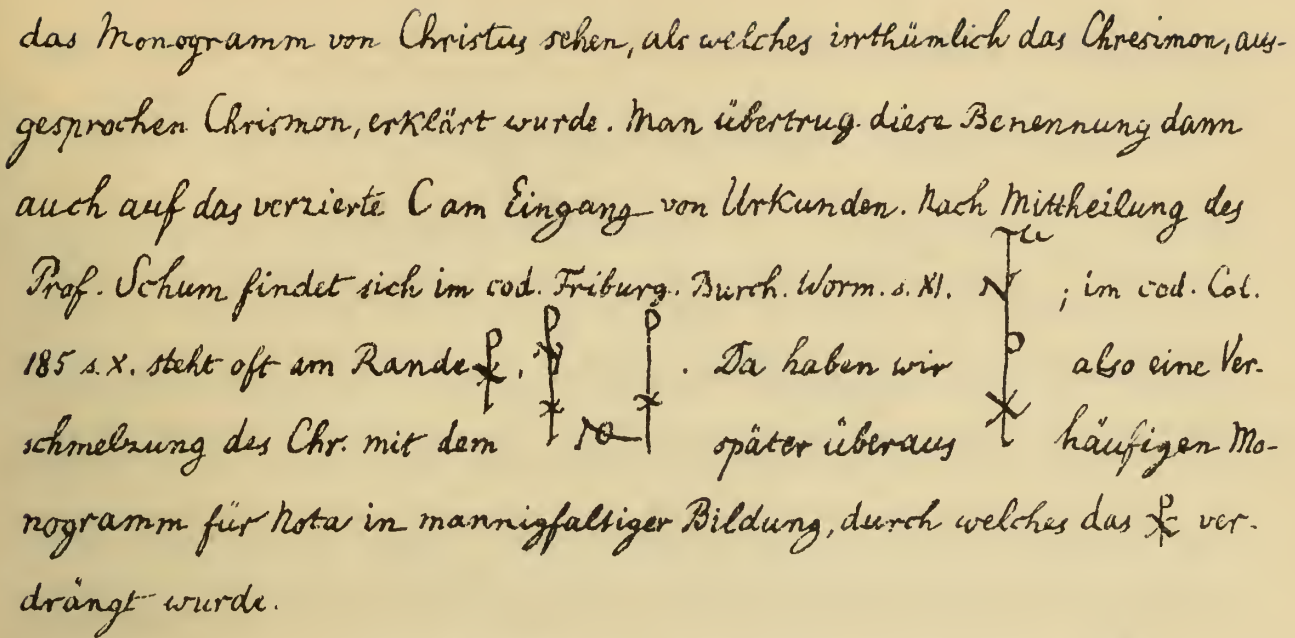 das Monogramm von Christus sehen, als welches irrthümlich das Chresimon, aus-
gesprochen Chrismon, erklärt wurde. Man übertrug diese Benennung dann
auch auf das verzierte C am Eingang von Urkunden. Nach Mittheilung des
Prof. Schum findet sich im cod. Friburg. Burch. Worm. s. XI. ; im cod. Col.
185 s. X. steht oft am Rande , . Da haben wir also eine Ver-
schmelzung des Chr. mit dem später überaus häufigen Mo-
nogramm für Nota in mannigfaltiger Bildung, durch welches das ver-
drängt wurde.